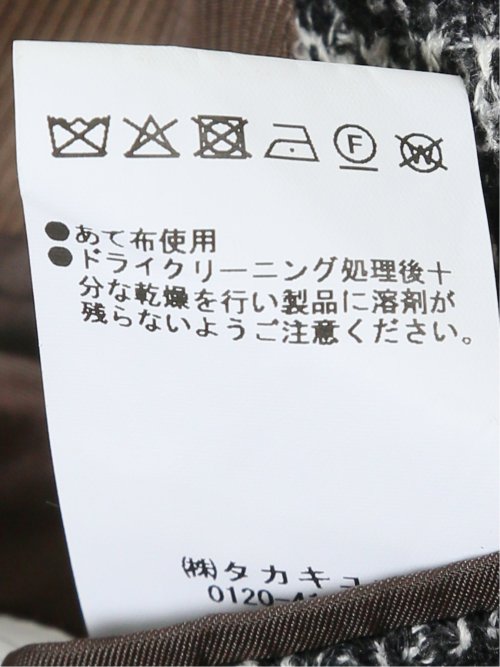 F W
●あて布使用
●ドライクリーニング処理後十
分な乾燥を行い製品に溶剤が
残らないようご注意ください。
㈱タカキュ
0120-4